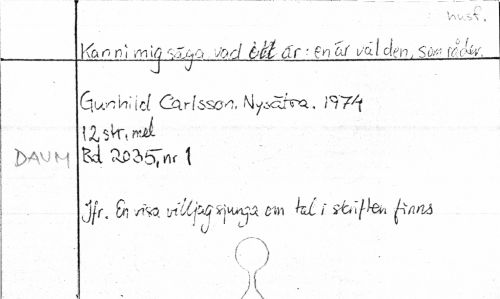 husf.
Kanni mig säga vad ett är: en är väl den, som råder
Gunhild Carlsson. Nysätra. 1974
12 str, mel
DAUM Bd 2035, nr 1
Jfr. En visa vill jag sjunga om tal i skriften finns